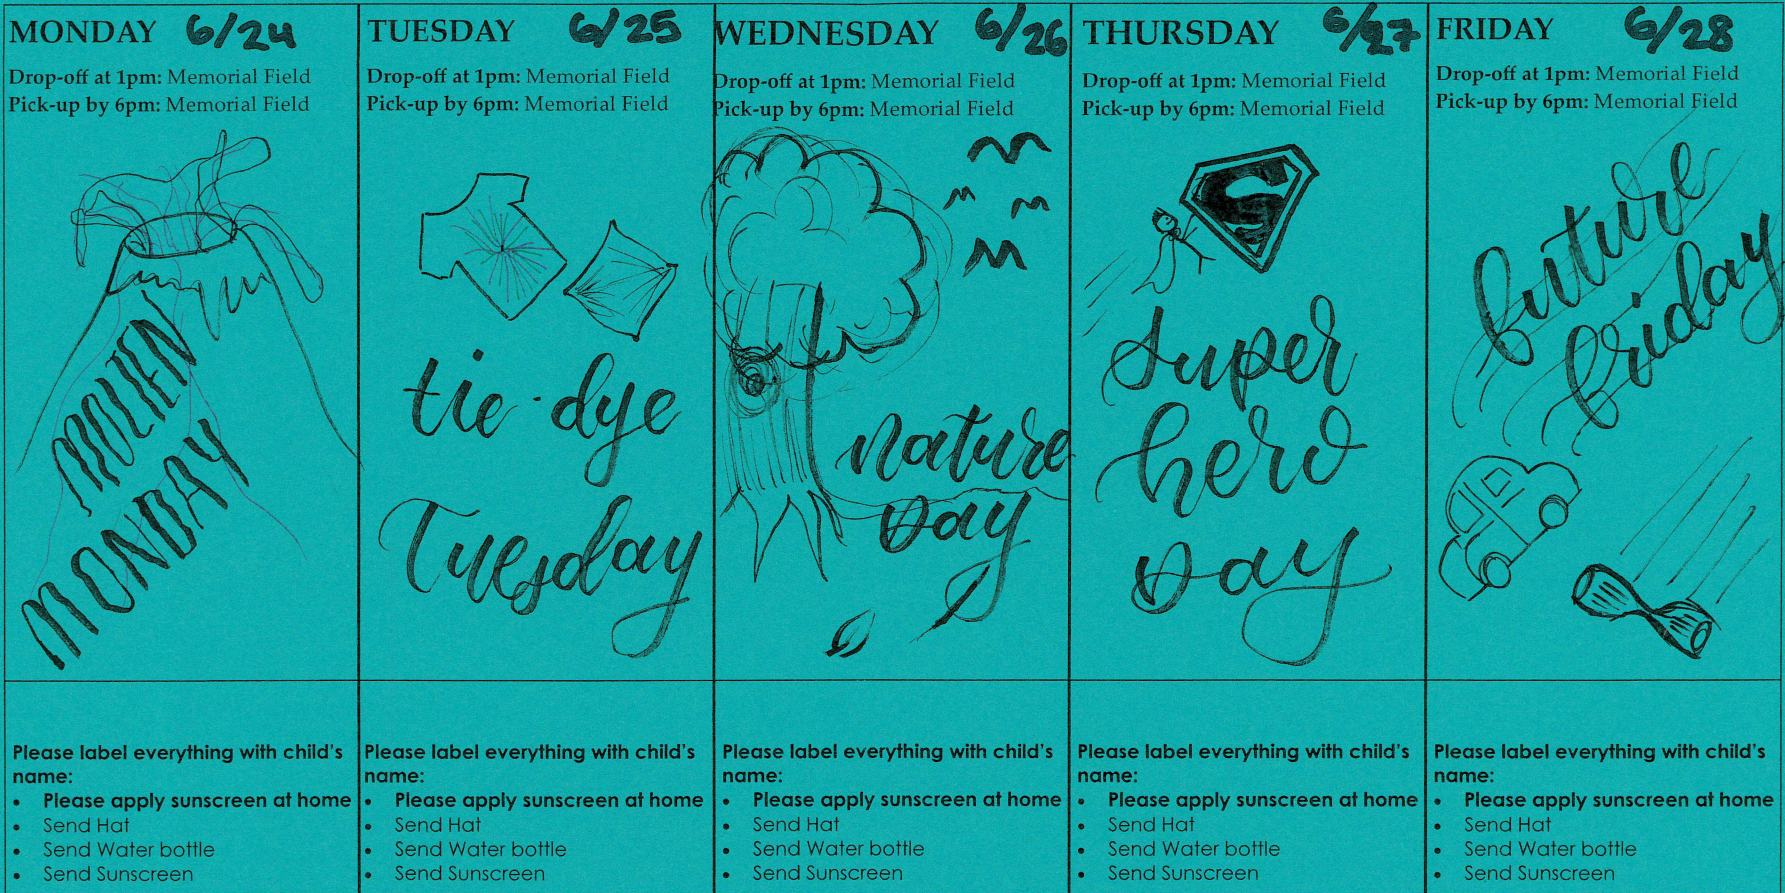 MONDAY 6/24
Drop-off at 1pm: Memorial Field
Pick-up by 6pm: Memorial Field
MOLTEN
MONDAY
Please label everything with child's
name:
• Please apply sunscreen at home
• Send Hat
• Send Water bottle
• Send Sunscreen
TUESDAY 6/25
Drop-off at 1pm: Memorial Field
Pick-up by 6pm: Memorial Field
tie-dye
Tuesday
Please label everything with child's
name:
• Please apply sunscreen at home
• Send Hat
• Send Water bottle
• Send Sunscreen
WEDNESDAY 6/26
Drop-off at 1pm: Memorial Field
Pick-up by 6pm: Memorial Field
nature
Day
Please label everything with child's
name:
• Please apply sunscreen at home
• Send Hat
• Send Water bottle
• Send Sunscreen
THURSDAY 6/27
Drop-off at 1pm: Memorial Field
Pick-up by 6pm: Memorial Field
S
super
hero
Day
Please label everything with child's
name:
• Please apply sunscreen at home
• Send Hat
• Send Water bottle
• Send Sunscreen
FRIDAY 6/28
Drop-off at 1pm: Memorial Field
Pick-up by 6pm: Memorial Field
future
friday
Please label everything with child's
name:
• Please apply sunscreen at home
• Send Hat
• Send Water bottle
• Send Sunscreen